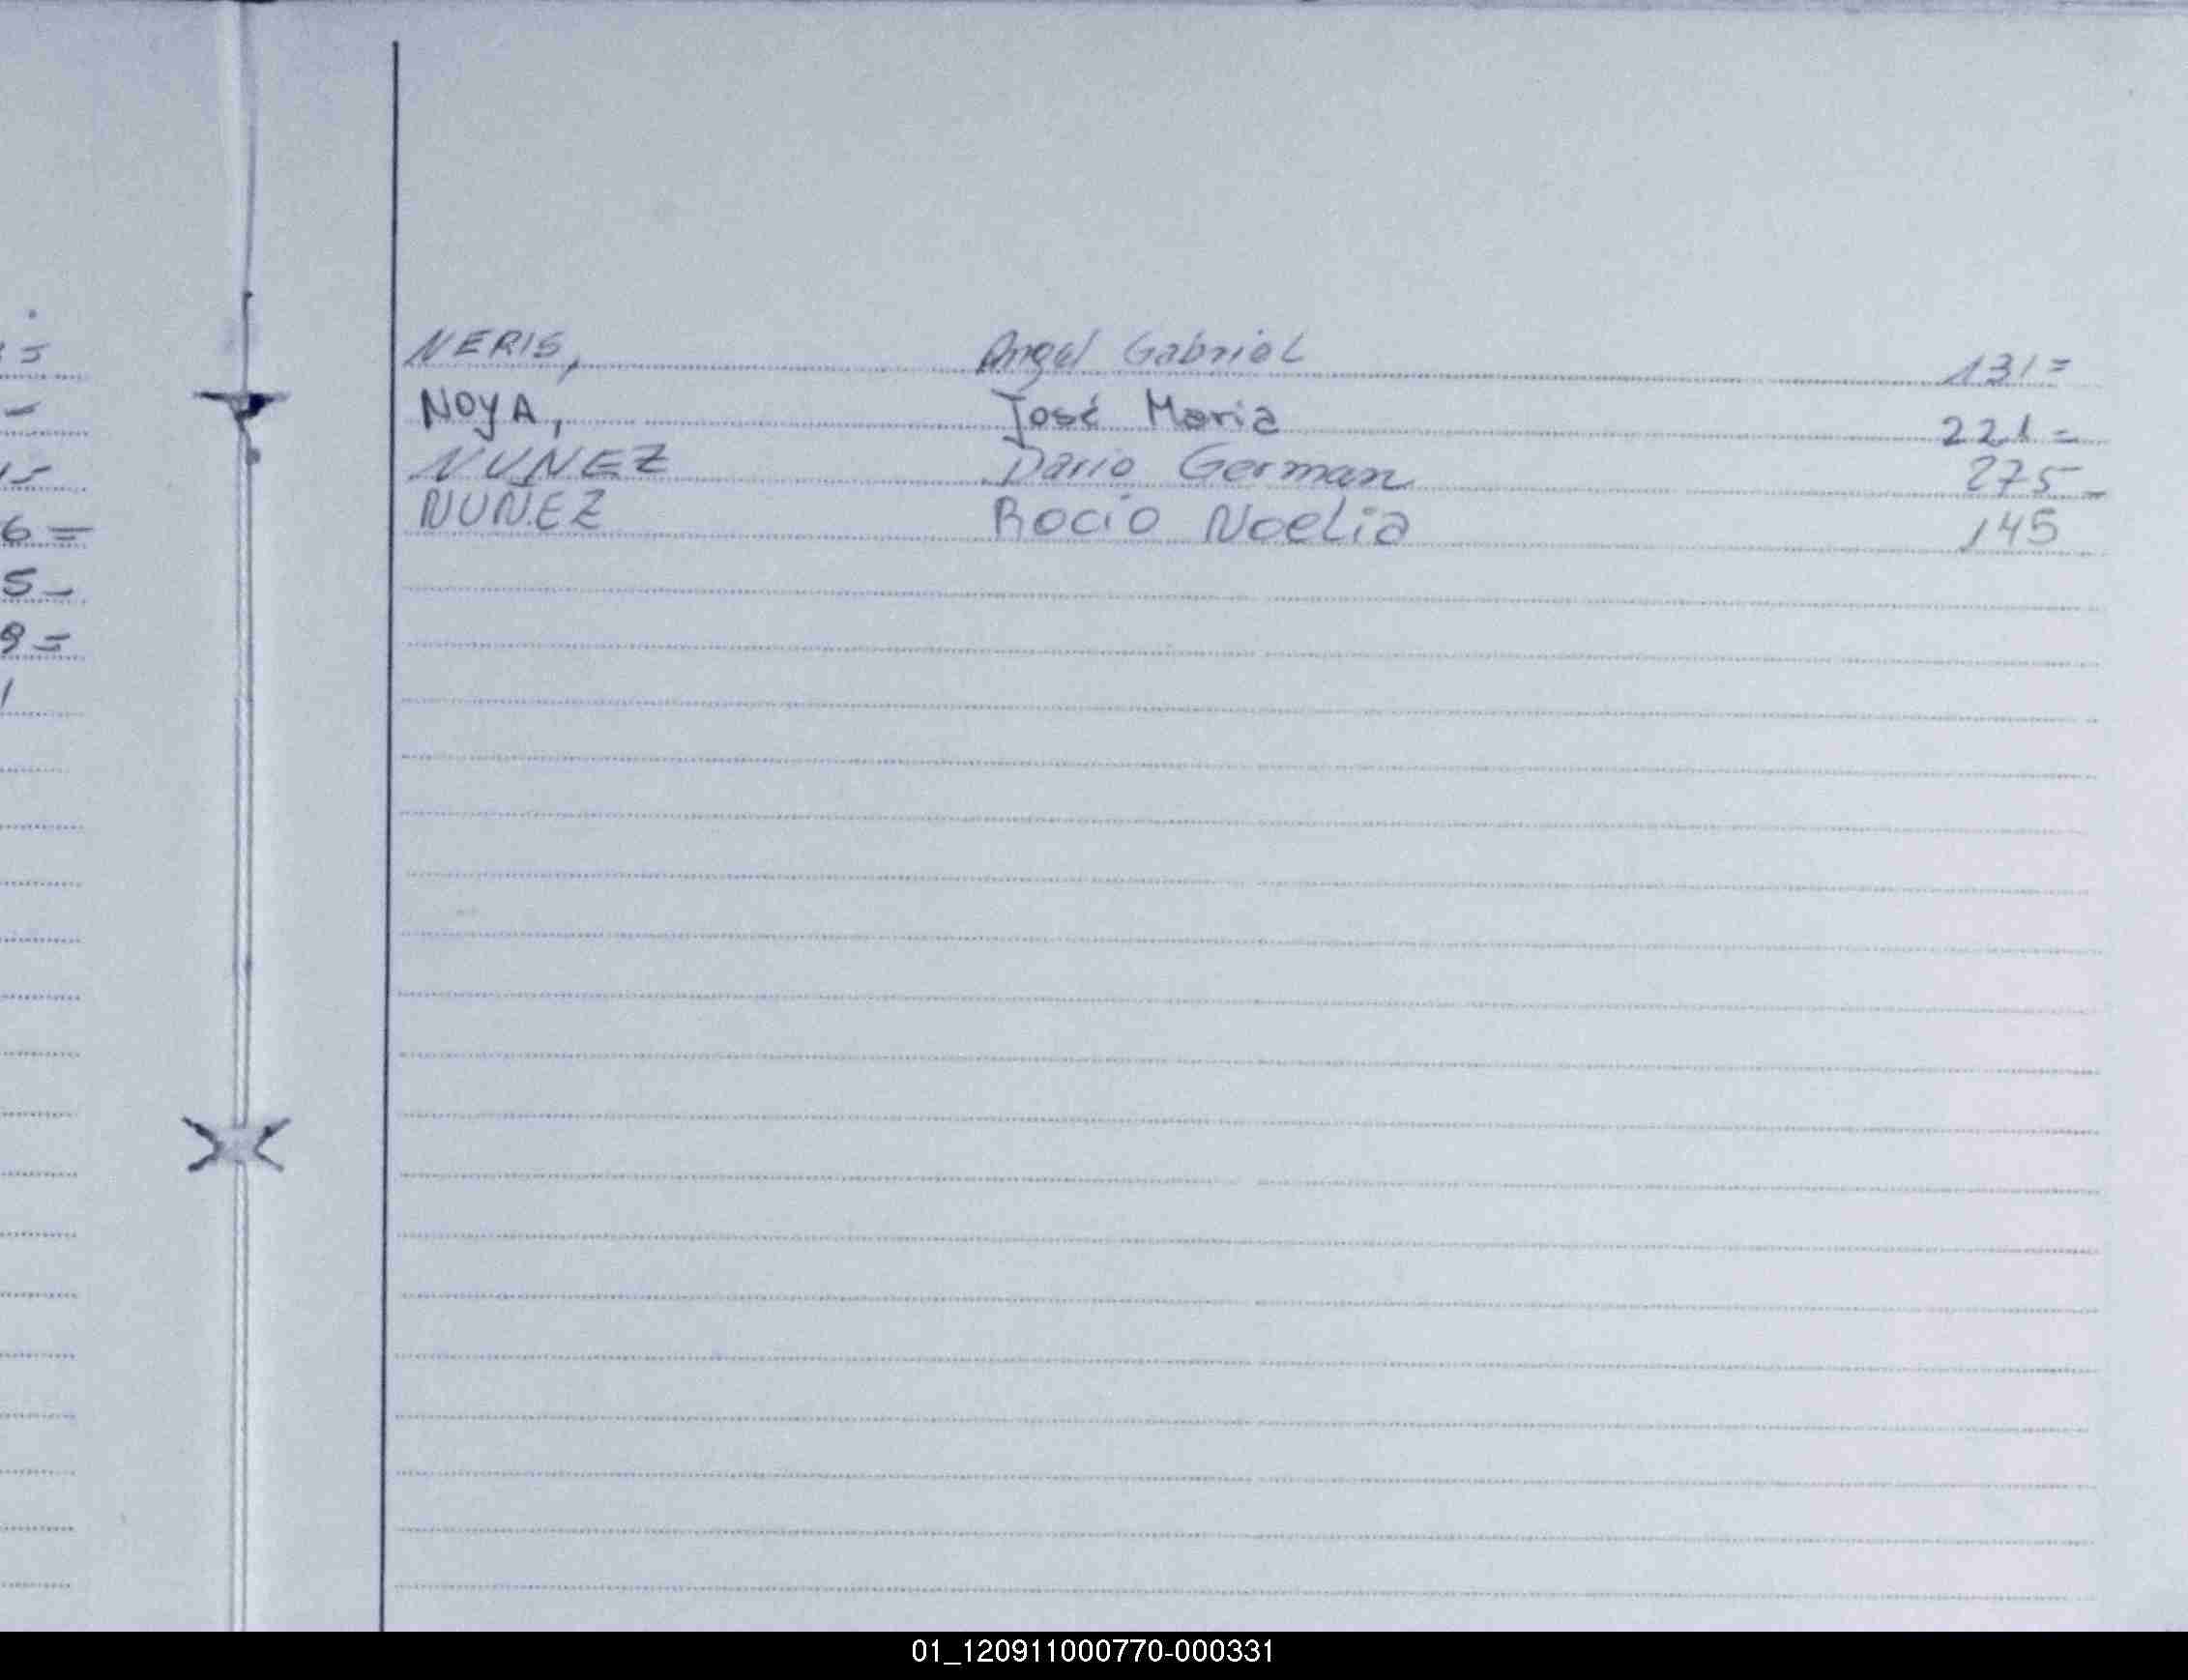 5
NERIS, Angel Gabriel 131=
-
NOYA, José Maria 221=
NUNEZ Dario German 275-
6=
NUÑEZ Rocio Noelia 145
5-
9=
1
01_120911000770-000331